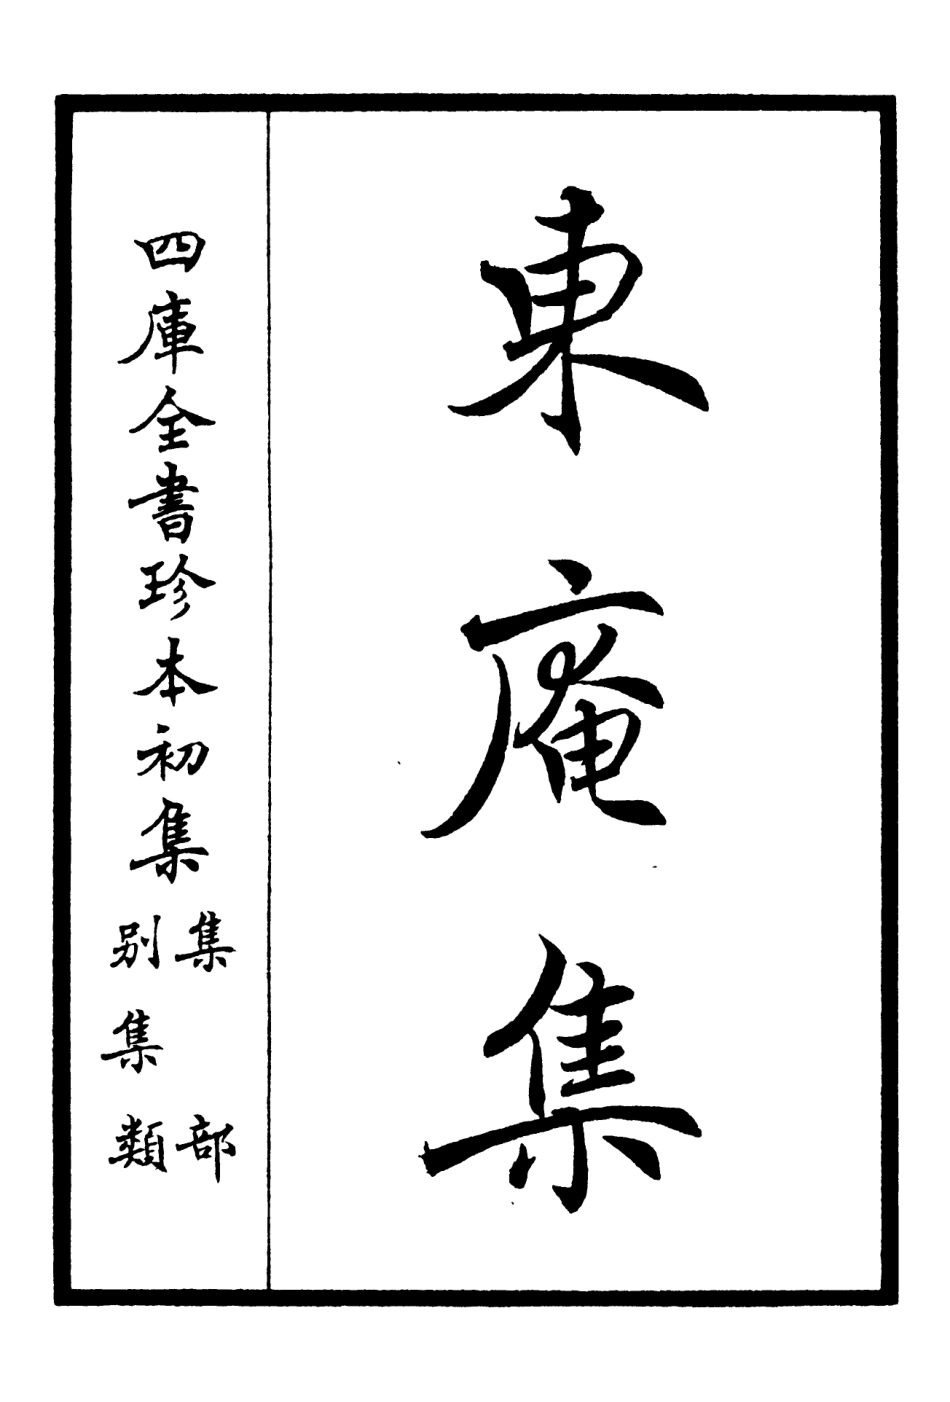 東庵集
四庫全書珍本初集
集部
別集類